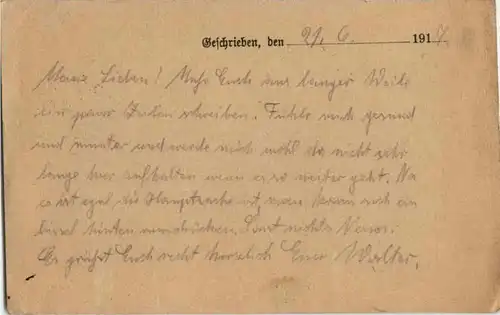 Geschrieben, den 21. 6. 191
Meine Lieben! Muß Euch aus langer Weile
ein paar Zeilen schreiben. Fühle mich gesund
und munter und werde mich wohl da nicht sehr
lange hier aufhalten wenn es so weiter geht. Na
es ist egal die Hauptsache ist, man kann noch ein
bissel hinten rumdrücken. Sonst nichts Neues.
Es grüßt Euch recht herzlich Euer Walter.